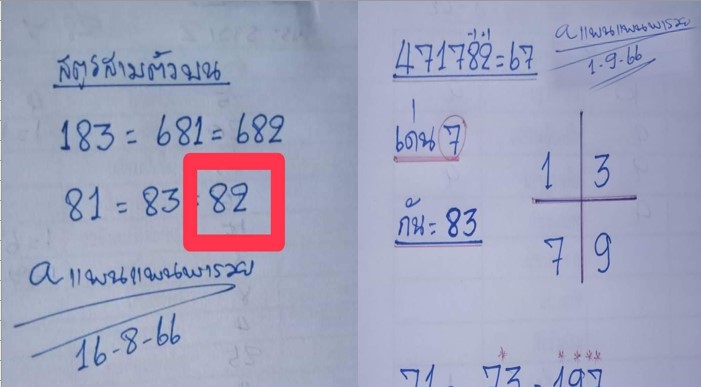 สูตรสามตัวบน
183 = 681 = 682
81 = 83 = 82
a แพนแพนพารวย
16-8-66
-1 +1
471782=67
a แพนแพนพารวย
1-9-66
เด่น 7
กัน= 83
1 3
7 9
71 - 73 - 197